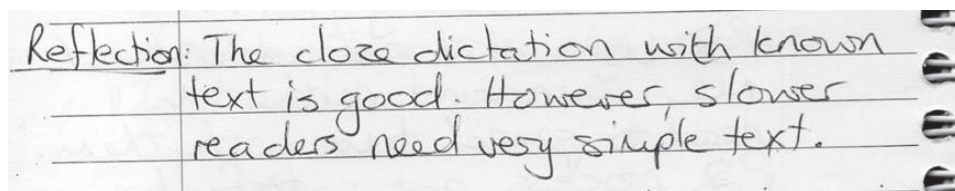 Reflection: The cloze dictation with known
text is good. However, slower
readers need very simple text.